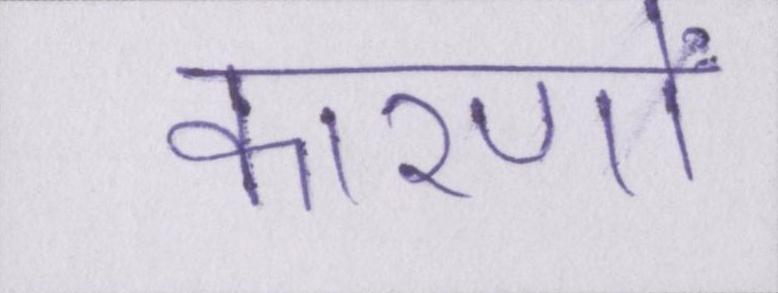 कारणों